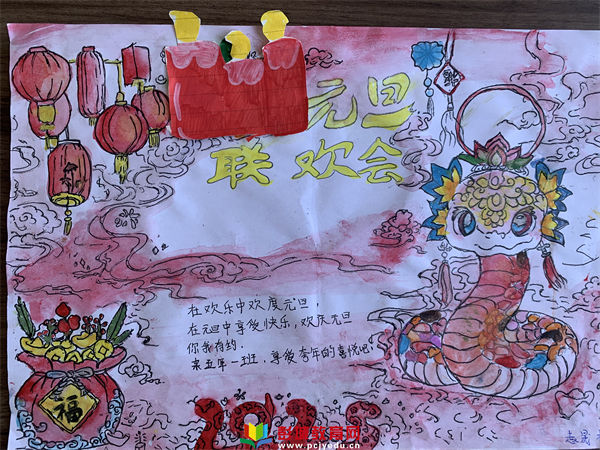 元旦
联欢会
福
在欢乐中欢度元旦,
在元旦中享後快乐,欢庆元旦
你我有约.
来五年一班,享後年的喜悦吧
福
202
教育网
www.pcjyedu.cn